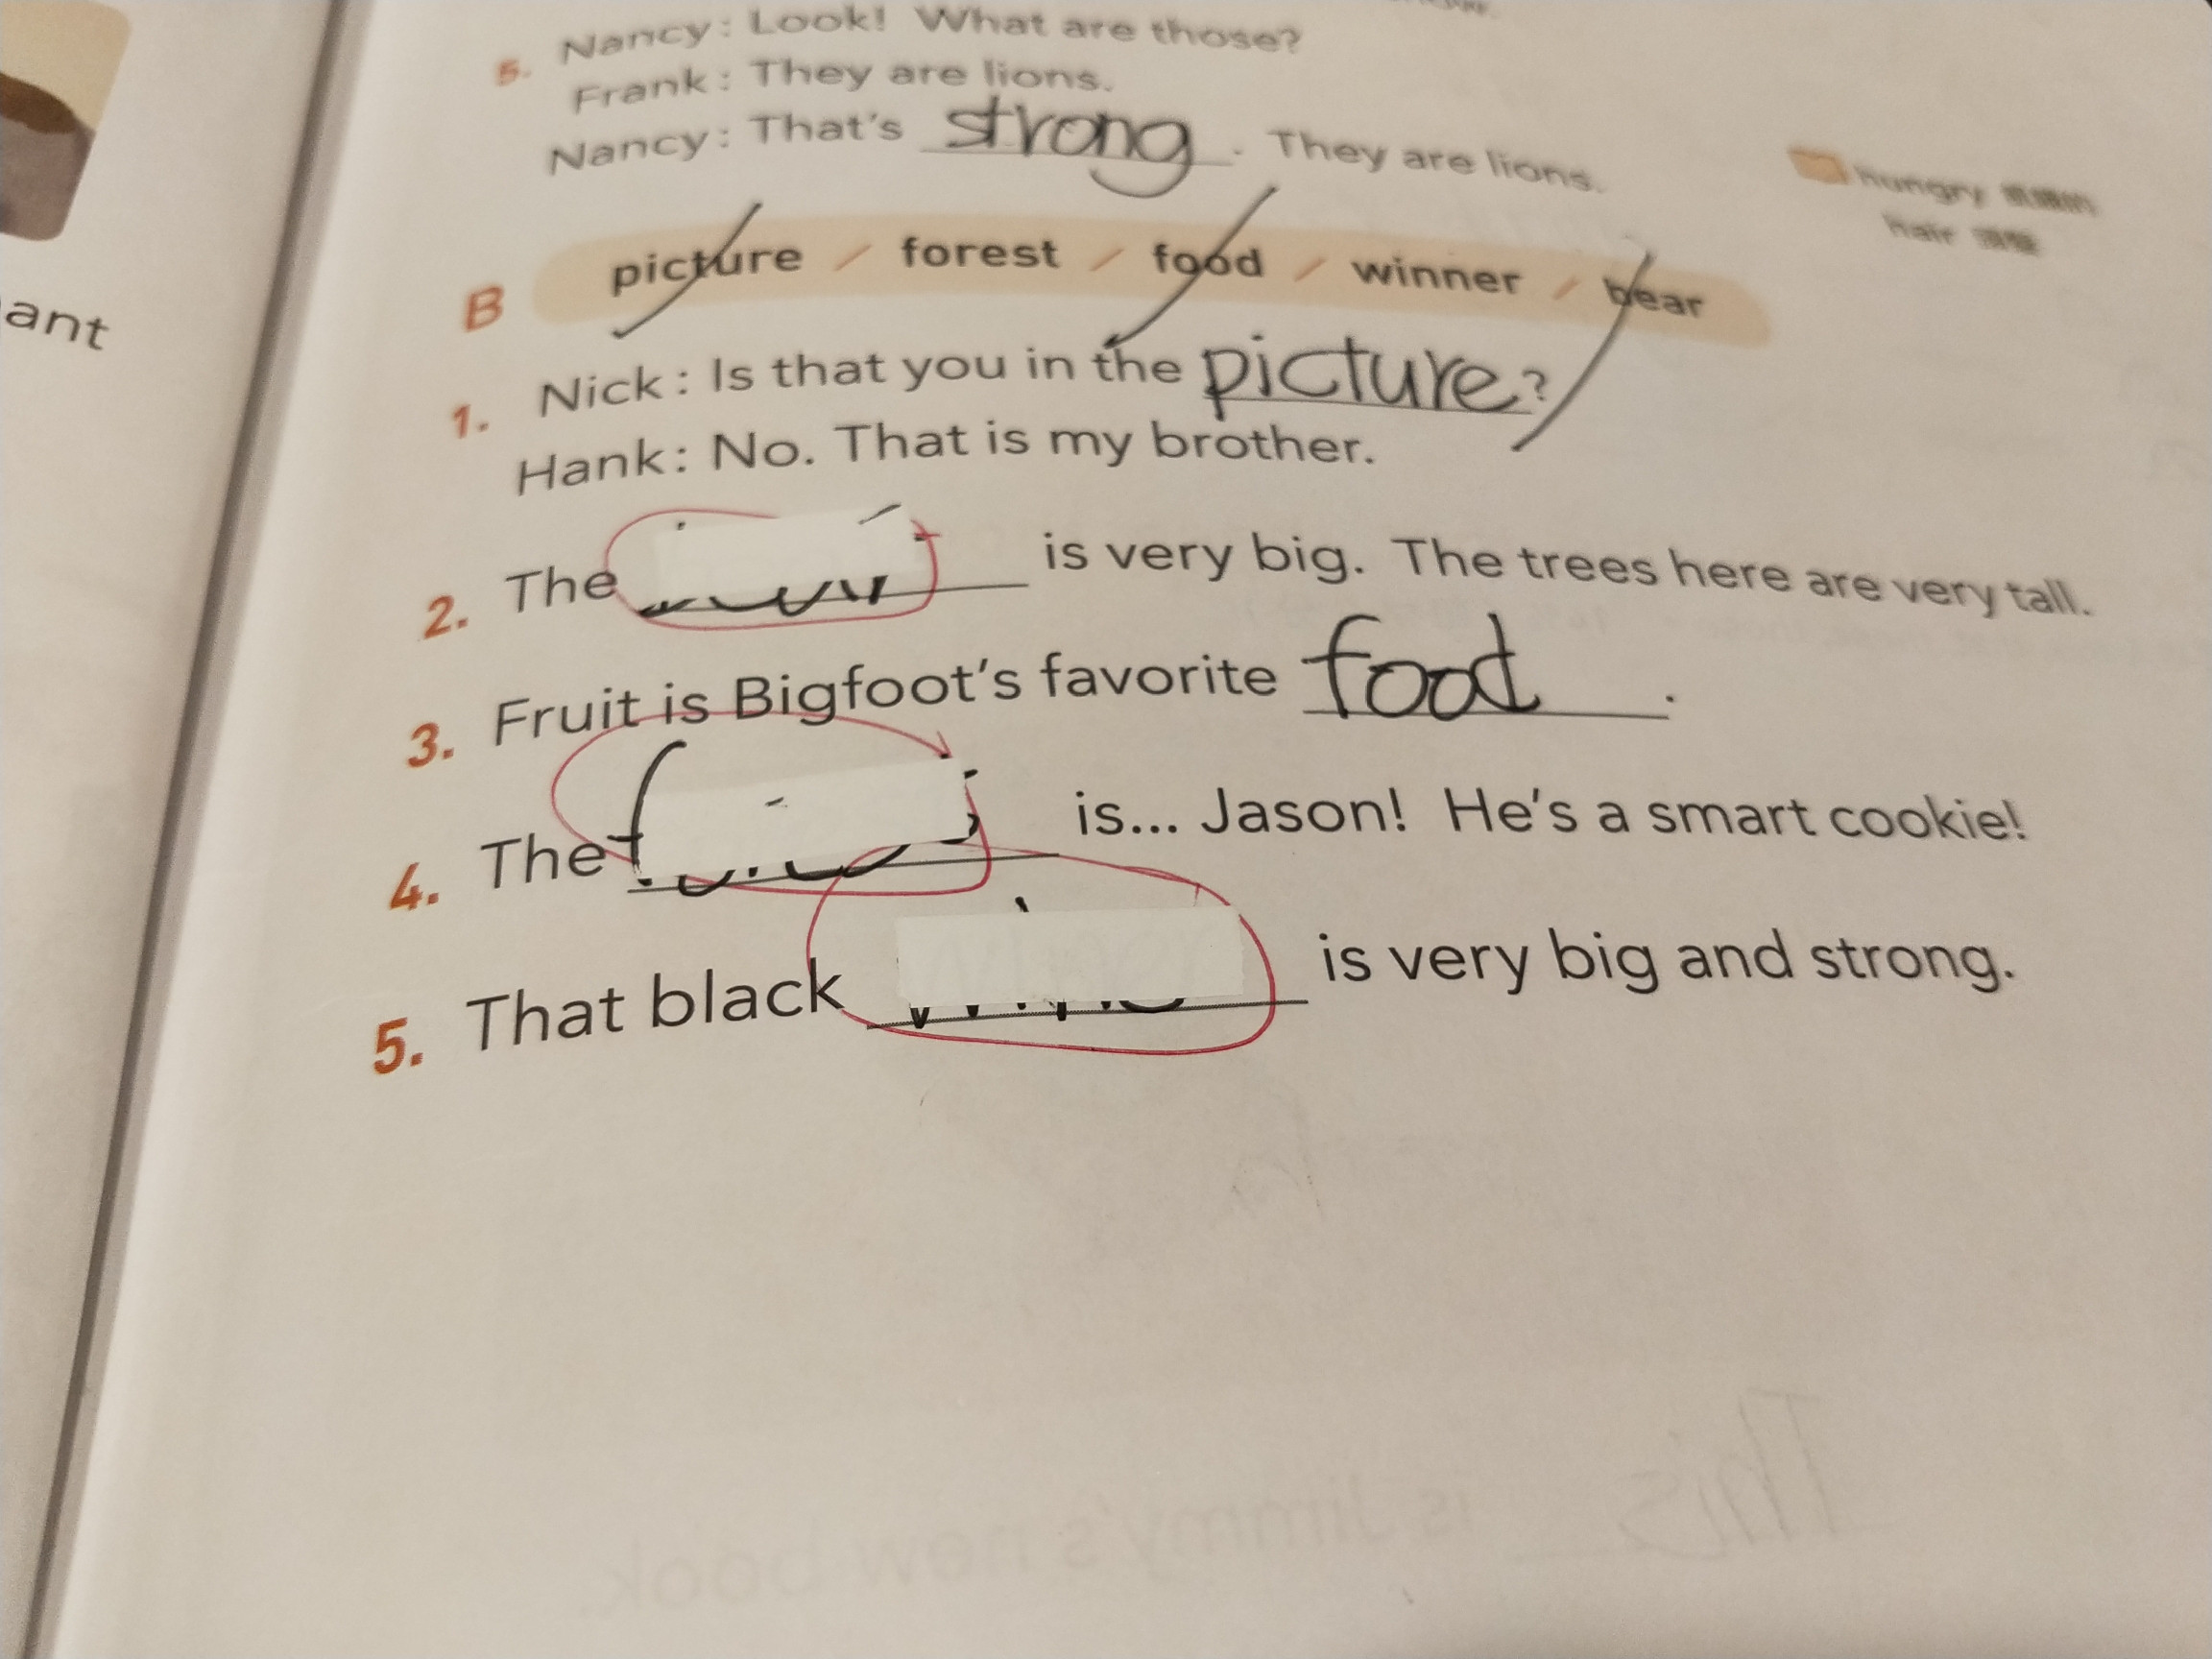 5. Nancy: Look! What are those?
Frank: They are lions.
Nancy: That's strong. They are lions.
hungry
hair
B picture / forest / food / winner / bear
ant
1. Nick: Is that you in the picture?
Hank: No. That is my brother.
2. The is very big. The trees here are very tall.
3. Fruit is Bigfoot's favorite food.
4. The is... Jason! He's a smart cookie!
5. That black is very big and strong.
This is Jimmy's new book